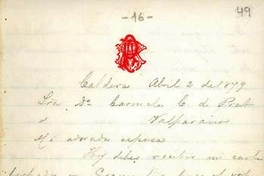 -46-
49
Caldera Abril 2 del 879
Sra. Da. Carmela C. de Prat
Valparaíso
Mi adorada esposa
Hoy debes recibir mi carta